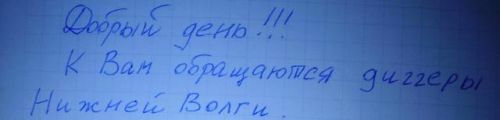 Добрый день!!!
К Вам обращаются диггеры
Нижней Волги.